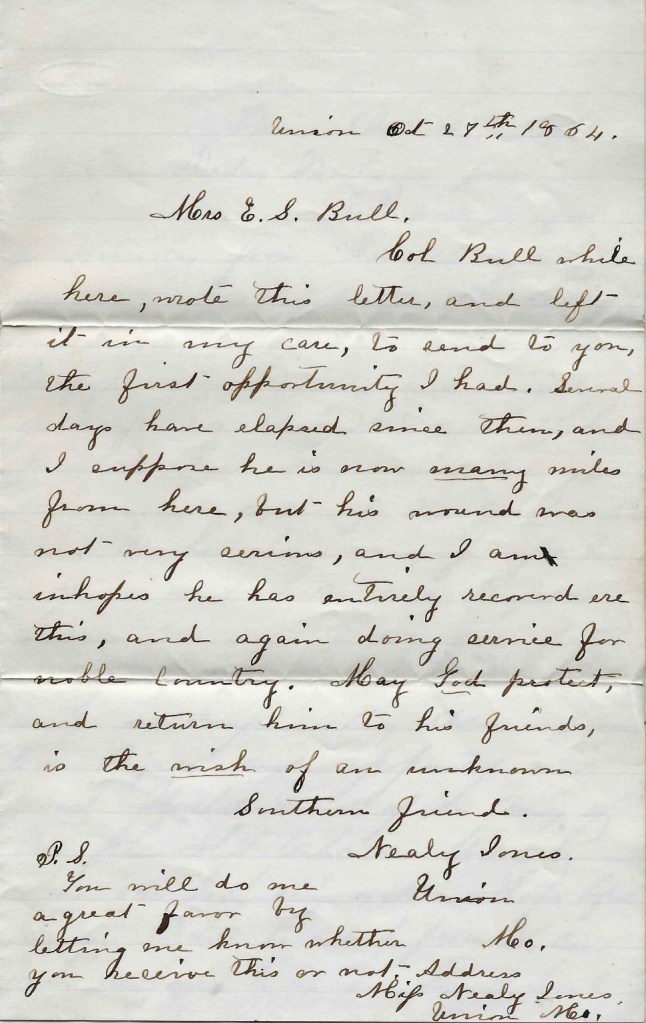 Union Oct 27th 1864.
Mrs E. S. Bull.
Col Bull while
here, wrote this letter, and left
it in my care, to send to you,
the first opportunity I had. Several
days have elapsed since then, and
I suppose he is now many miles
from here, but his wound was
not very serious, and I am
inhopes he has entirely recoverd ere
this, and again doing service for
noble Country. May God protect,
and return him to his friends,
is the wish of an unknown
Southern friend.
Nealy Jones.
Union
Mo.
P.S.
You will do me
a great favor by
letting me know whether
you receive this or not. Address
Miss Nealy Jones,
Union Mo.